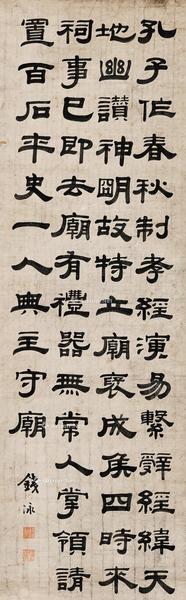 孔子作春秋制孝經演易繫辭經緯天
地幽讚神明故特立廟褒成侯四時來
祠事已即去廟有禮器無常人掌領請
置百石卒史一人典主守廟
錢泳